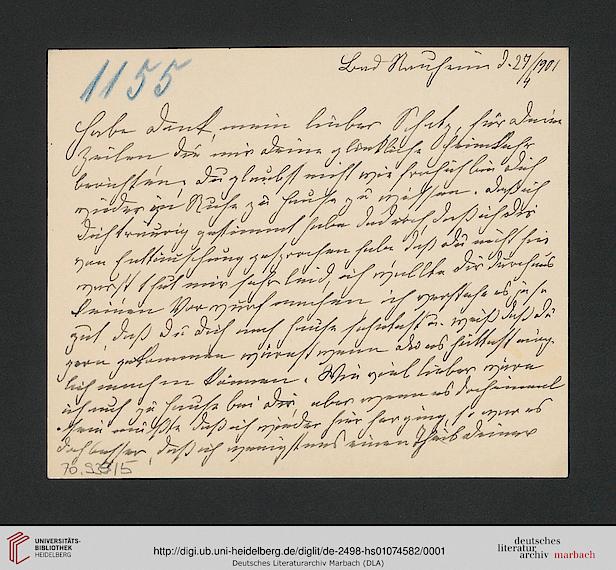 1155
Bad Nauheim d. 27/4 1901
Habe Dank, mein lieber Schatz, für Deine
Zeilen die mir Deine glückliche Heimkehr
berichten; Du glaubst nicht wie froh ich bin Dich
wieder in Ruhe zu Hause zu wissen. Daß ich
Dich traurig gestimmt habe dadurch, daß ich Dir
von Enttäuschung gesprochen habe, daß Du nicht hier
warst thut mir sehr leid, ich wollte Dir durchaus
keinen Vorwurf machen ich verstehe es ja so
gut, daß Du Dich nach Hause sehntest u. weiß daß Du
gern gekommen wärest wenn Du es hättest mög-
lich machen können. Wie viel lieber wäre
ich auch zu Hause bei Dir aber wenn es doch einmal
sein mußte daß ich wieder hier herging, so war es
doch besser, daß ich wenigstens einen Theil Deiner
70.939/5
UNIVERSITÄTS-
BIBLIOTHEK
HEIDELBERG
http://digi.ub.uni-heidelberg.de/diglit/de-2498-hs01074582/0001
Deutsches Literaturarchiv Marbach (DLA)
deutsches
literatur
archiv marbach